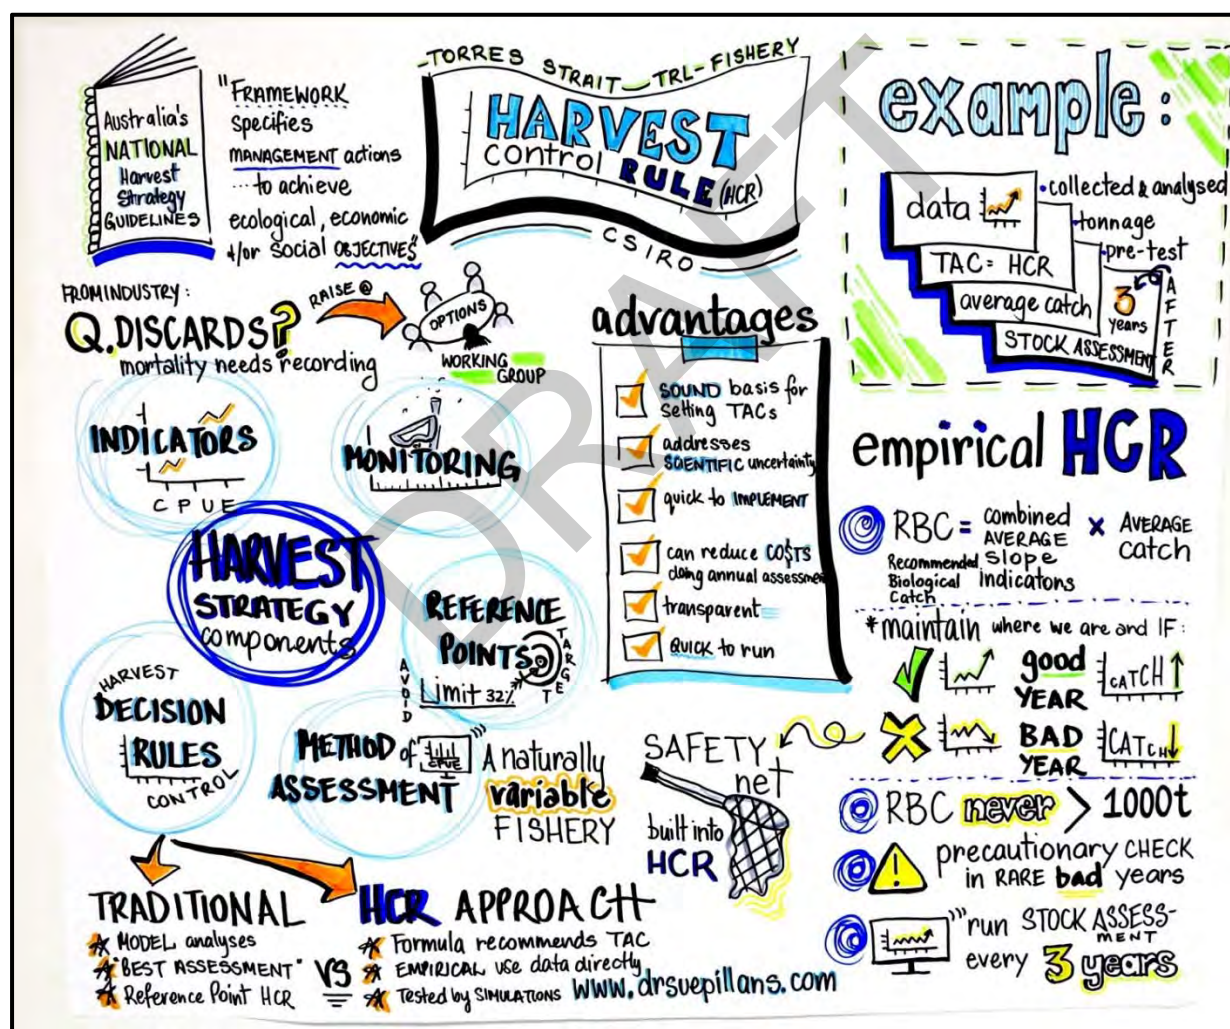 Australia's
NATIONAL
Harvest
Strategy
GUIDELINES
"FRAMEWORK
specifies
MANAGEMENT actions
....to achieve
ecological, economic
+/or social OBJECTIVES"
-TORRES STRAIT_TRL-FISHERY
HARVEST
control RULE (HCR)
CSIRO
example:
data
•collected & analysed
•tonnage
TAC = HCR
•pre-test
average catch
3
years
STOCK ASSESSMENT
AFTER
FROM INDUSTRY:
Q.DISCARDS?
mortality needs recording
RAISE @
OPTIONS
WORKING
GROUP
INDICATORS
CPUE
MONITORING
HARVEST
STRATEGY
components
REFERENCE
POINTS
AVOID
Limit 32%
TARGET
HARVEST
DECISION
RULES
CONTROL
METHOD of
CPUE
ASSESSMENT
A naturally
variable
FISHERY
advantages
SOUND basis for
setting TACs
addresses
SCIENTIFIC uncertainty
quick to IMPLEMENT
can reduce CO$TS
doing annual assessment
transparent
QUICK to run
empirical HCR
RBC = combined AVERAGE slope Indicatons × AVERAGE catch
Recommended
Biological
Catch
*maintain where we are and IF:
good
YEAR
CATCH ↑
BAD
YEAR
CATCH ↓
SAFETY
net
built into
HCR
RBC never > 1000t
precautionary CHECK
in RARE bad years
run STOCK ASSESS-
MENT
every 3 years
TRADITIONAL
MODEL analyses
"BEST ASSESSMENT"
Reference Point HCR
VS
HCR APPROACH
Formula recommends TAC
EMPIRICAL use data directly
Tested by SIMULATIONS
www.drsuepillans.com
DRAFT